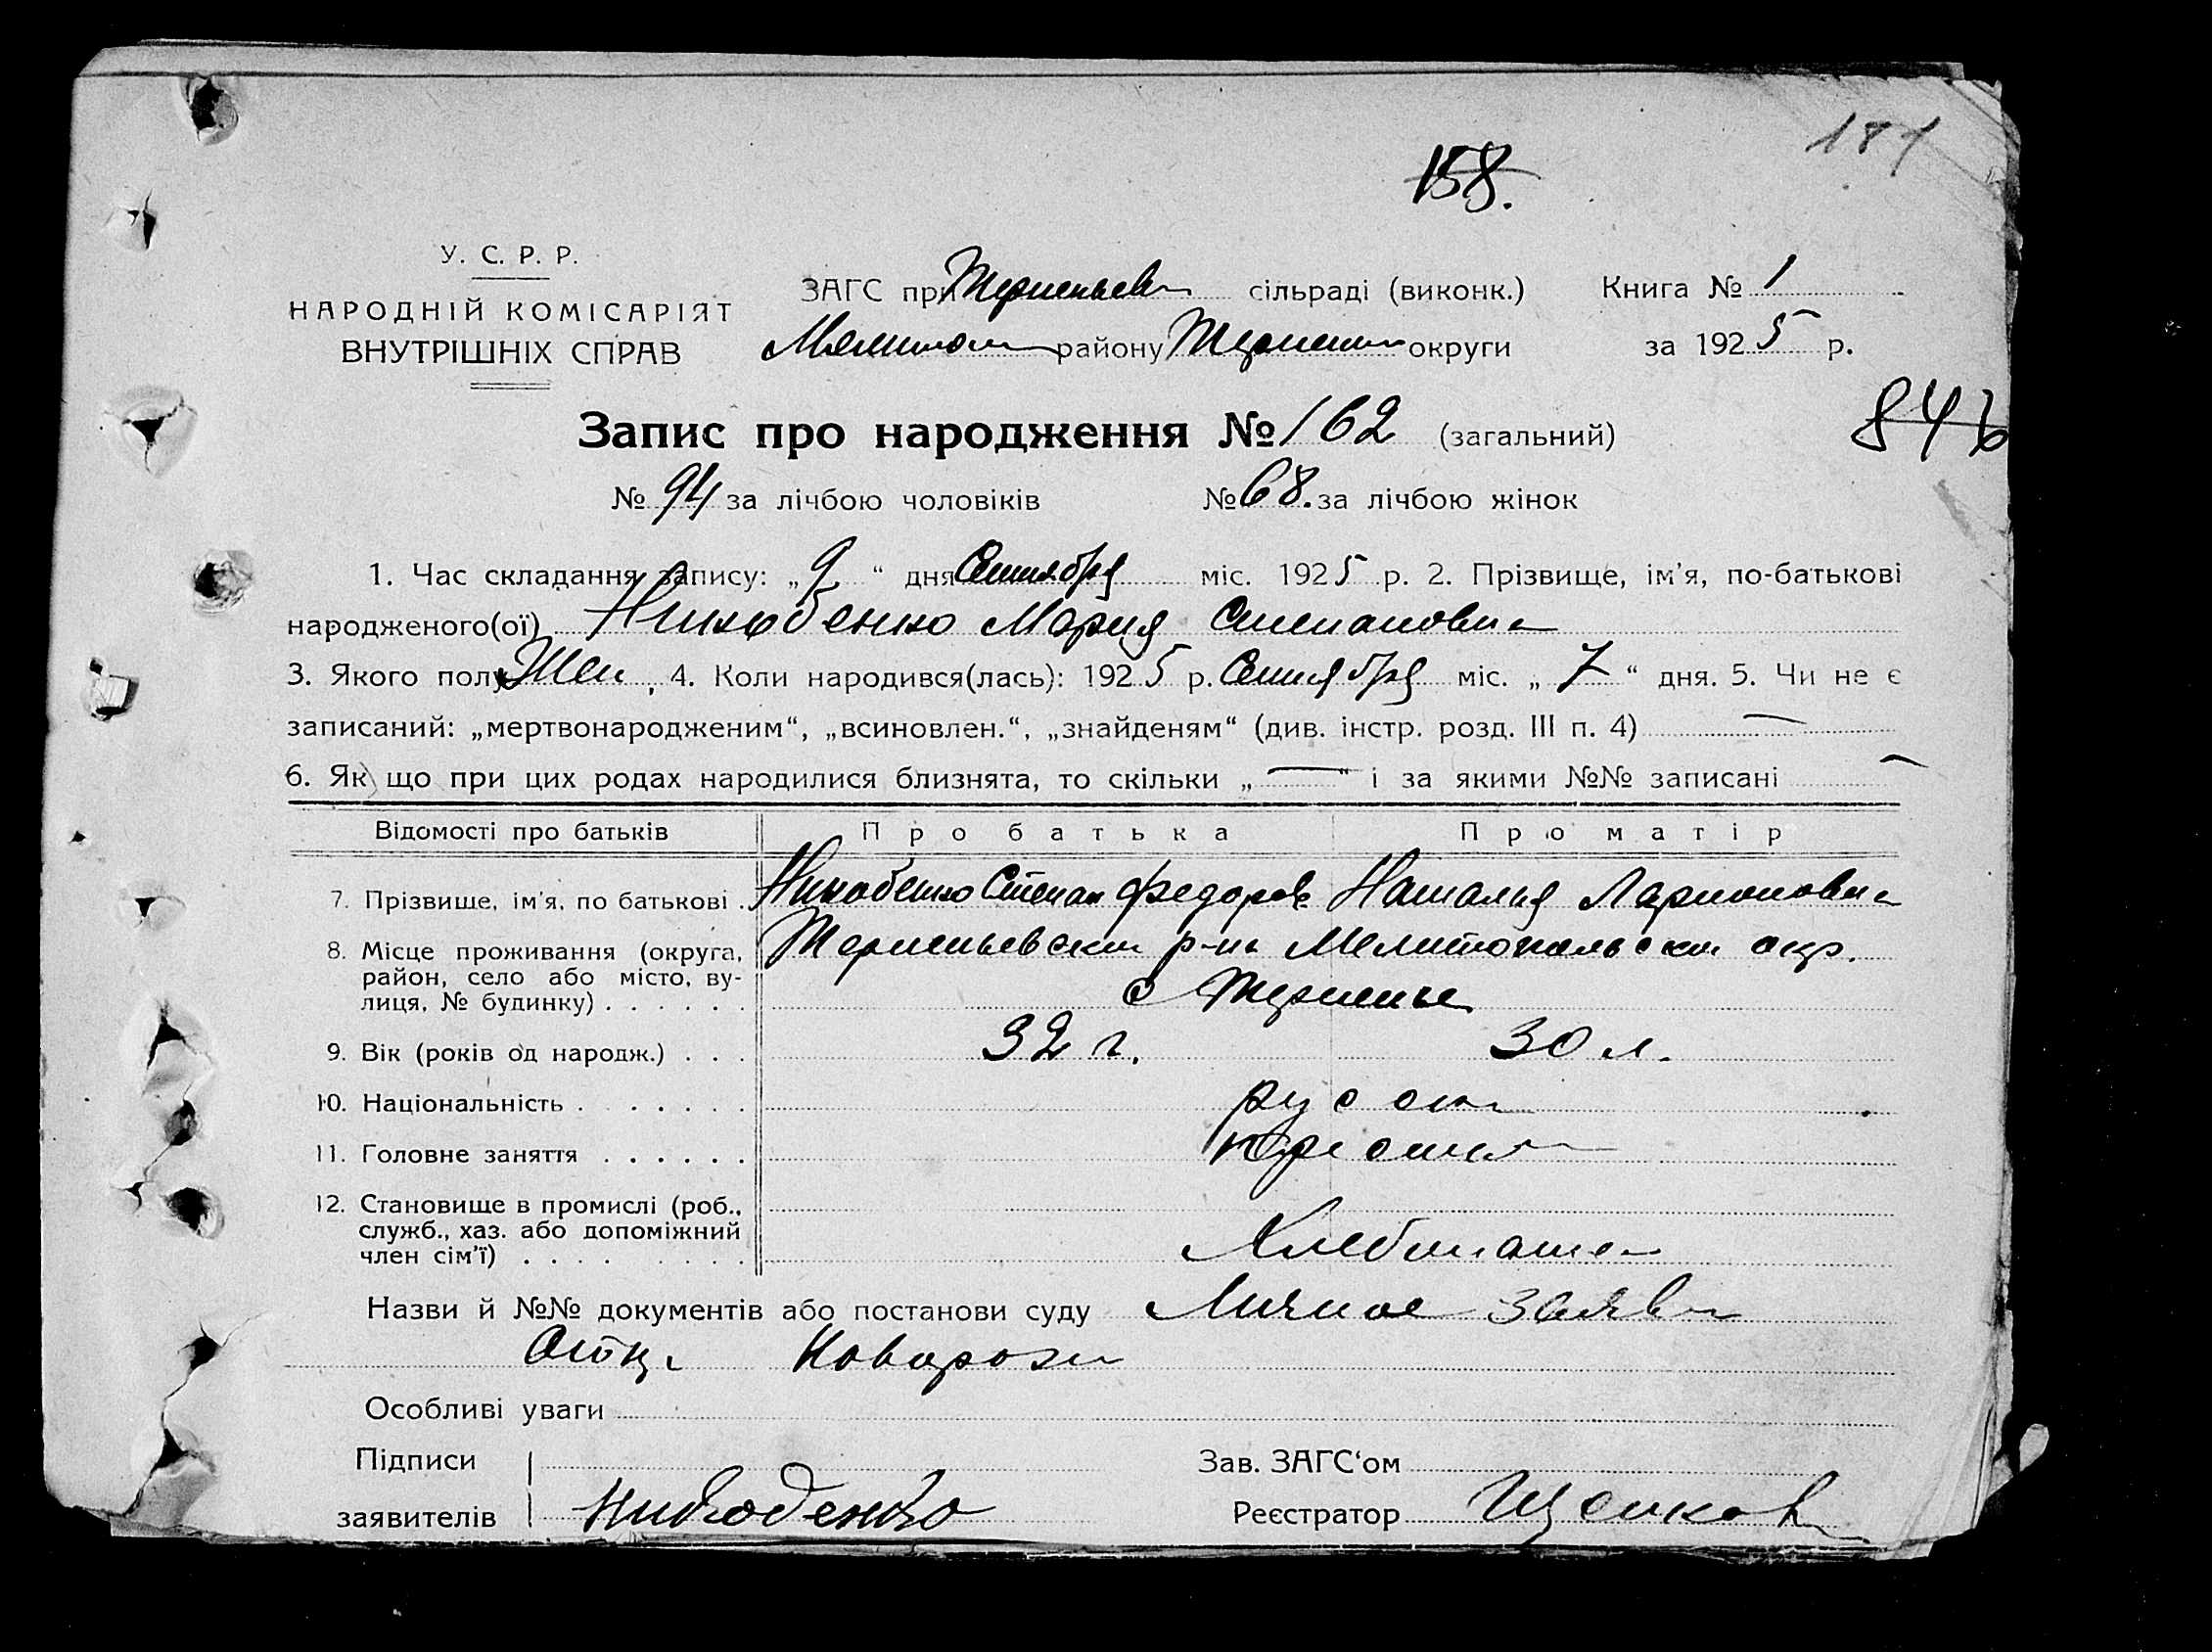 181
158.
У. С. Р. Р.
НАРОДНІЙ КОМІСАРІЯТ
ВНУТРІШНІХ СПРАВ
ЗАГС при Терпеньев сільраді (виконк.) Книга № 1
району округи за 1925 р.
846
Запис про народження № 162 (загальний)
№ 94 за лічбою чоловіків № 68. за лічбою жінок
1. Час складання запису: „9“ дня Сентября міс. 1925 р. 2. Прізвище, ім'я, по-батькові
народженого(ої) Никоденко Мария Степановн
3. Якого полу Жен, 4. Коли народився(лась): 1925 р. Сентября міс. „7“ дня. 5. Чи не є
записаний: „мертвонародженим“, „всиновлен.“, „знайденям“ (див. інстр. розд. III п. 4) —
6. Як що при цих родах народилися близнята, то скільки „—“ і за якими №№ записані —
Відомості про батьків Про батька Про матір
7. Прізвище, ім'я, по батькові . Никоденко Степан Федоров Наталия Ларионовн
8. Місце проживання (округа, район, село або місто, вулиця, № будинку) . . . . . . Терпеньевски р-н Мелитопольски окр.
с Терпенье
9. Вік (років од народж.) . . . 32 г. 30 л.
10. Національність . . . . . . . русск
11. Головне заняття . . . . . . крестьян
12. Становище в промислі (роб., служб., хаз. або допоміжний член сім'ї) . . . . . . . . Хлебопаше
Назви й №№ документів або постанови суду Личное заявл
Отца Новорож
Особливі уваги
Підписи Зав. ЗАГС'ом
заявителів Никоденко Реєстратор